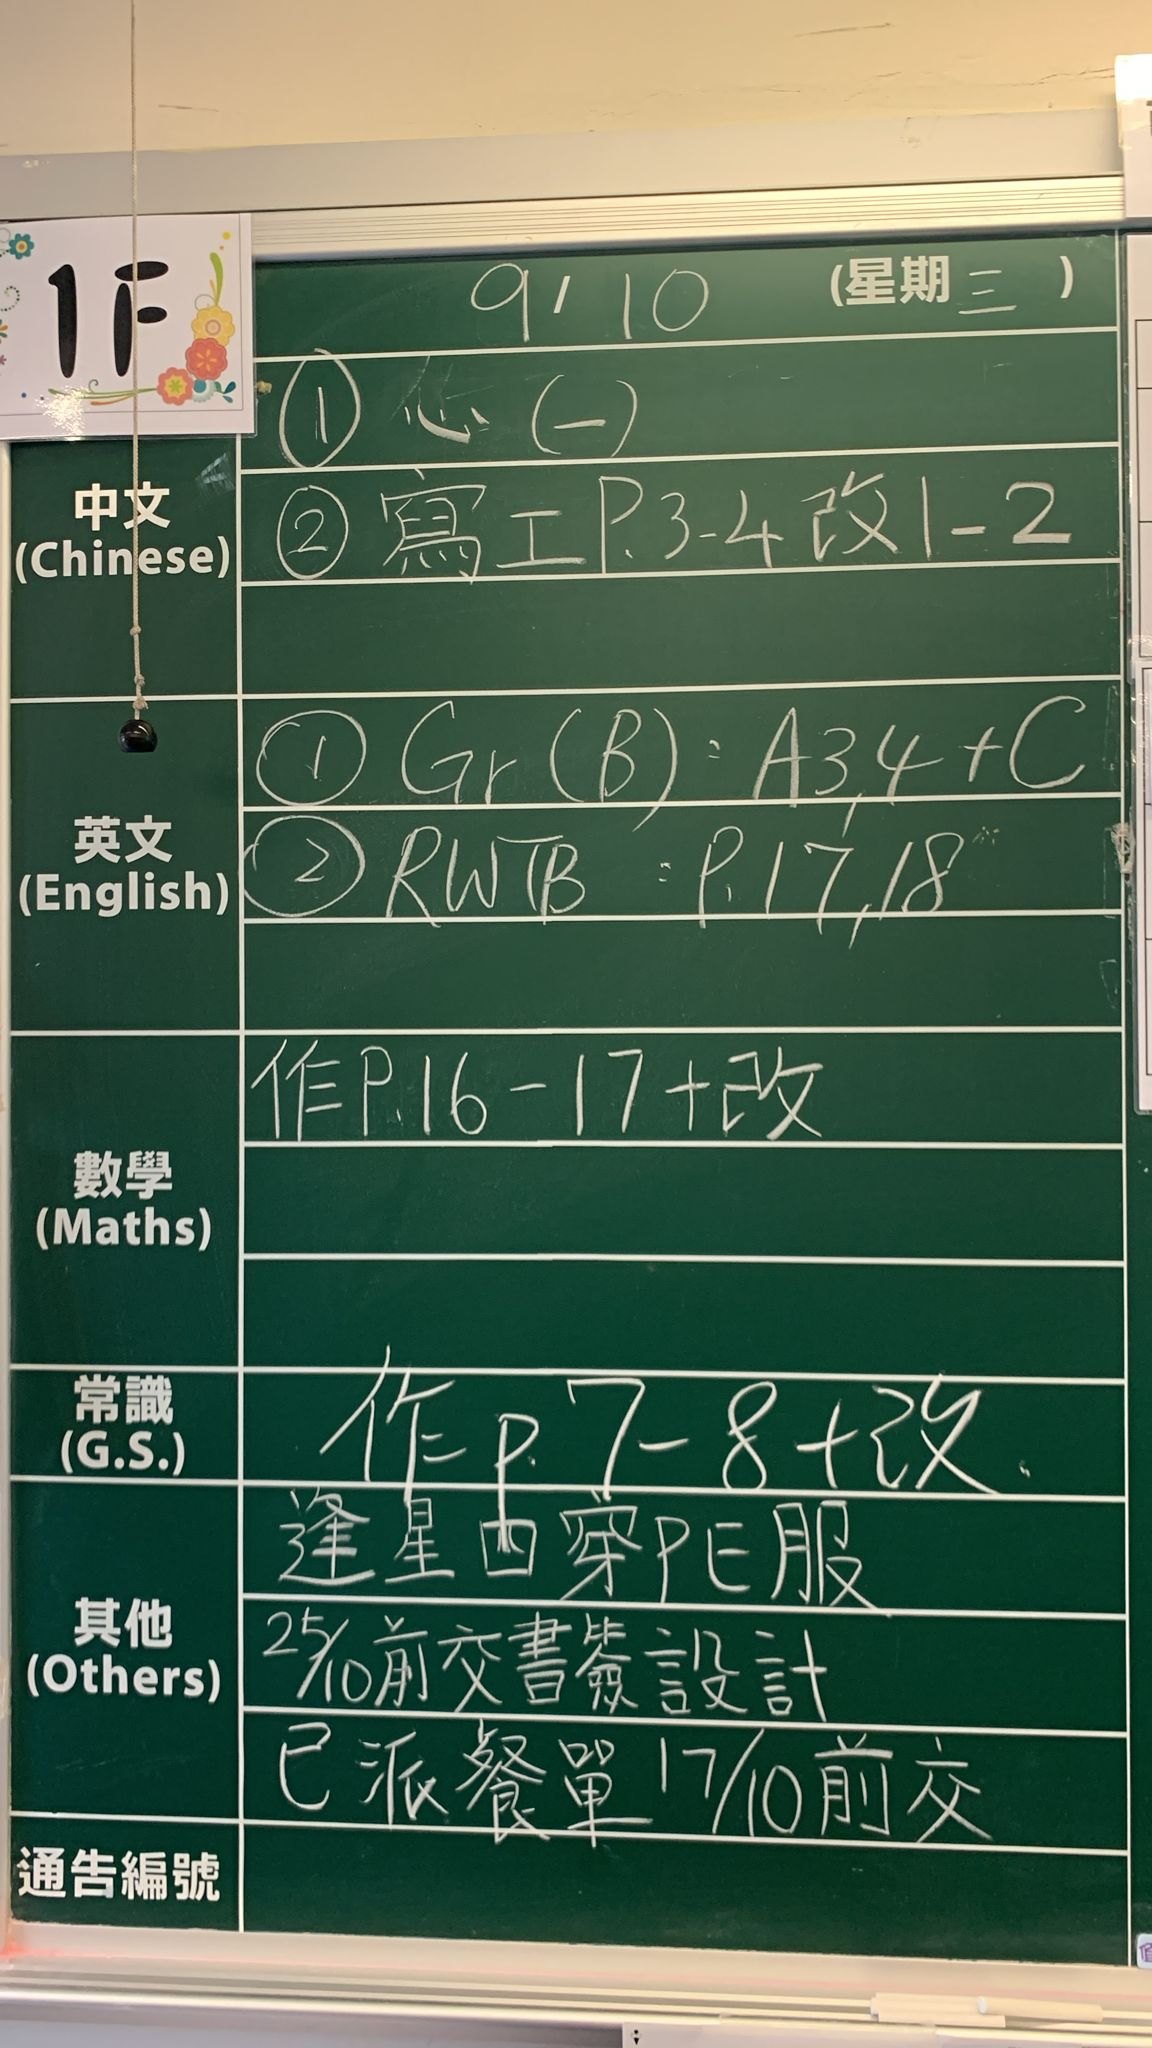 1F
9/10 (星期三)
① 心(一)
中文
(Chinese)
② 寫工P.3-4改1-2
① Gr(B):A3,4+C
英文
(English)
② RWTB :P.17,18
作P.16-17+改
數學
(Maths)
常識
(G.S.)
作P.7-8+改.
逢星四穿PE服
其他
(Others)
25/10前交書簽設計
已派餐單17/10前交
通告編號